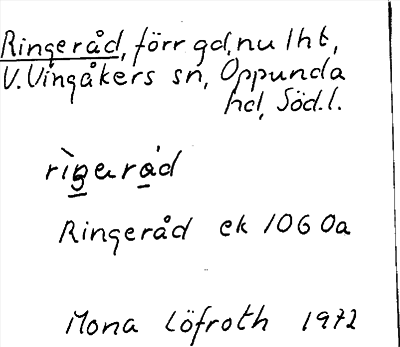 Ringeråd, förr gd, nu lht,
V. Vingåkers sn, Oppunda
hd, Söd.l.
Ringeråd ek 10G 0a
Mona Löfroth 1972